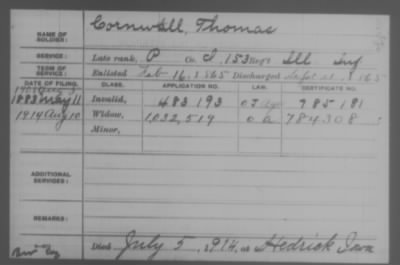 Cornwall, Thomas
NAME OF SOLDIER:
SERVICE: Late rank, P Co. I, 153 Reg't Ill Inf
TERM OF SERVICE: Enlisted Feb 16, 1865 Discharged Sept 21, 1865
DATE OF FILING. CLASS. APPLICATION NO. LAW. CERTIFICATE NO.
1883 May 11 Invalid, 483193 785181
1914 Aug 10 Widow, 1,032,519 784308
Minor,
ADDITIONAL SERVICES:
REMARKS:
Died July 5, 1914, at Hedrick Iowa